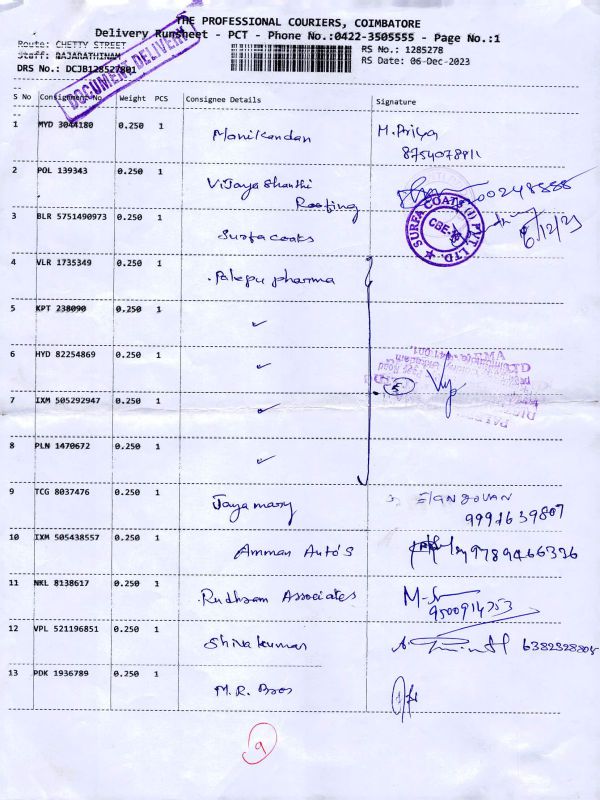 THE PROFESSIONAL COURIERS, COIMBATORE
Delivery Runsheet - PCT - Phone No.:0422-3505555 - Page No.:1
Route: CHETTY STREET
Staff: RAJARATHINAM
DRS No.: DCJB128527801
RS No.: 1285278
RS Date: 06-Dec-2023
DOCUMENT DELIVERY
S No Consignment No Weight PCS Consignee Details Signature
1 MYD 3044180 0.250 1 Manikandan M.Priya
8754078911
2 POL 139343 0.250 1 Vijaya Shanthi
Roofing
3 BLR 5751490973 0.250 1 Surfa coats 6/12/23
SURFA COATS (I) PVT. LTD.
CBE-18
4 VLR 1735349 0.250 1 Palepu pharma
5 KPT 238090 0.250 1 ✓
6 HYD 82254869 0.250 1 ✓
7 IXM 505292947 0.250 1 ✓ 5
8 PLN 1470672 0.250 1 ✓
9 TCG 8037476 0.250 1 Jayamary ELANGOVAN
9991639807
10 IXM 505438557 0.250 1 Amman Auto's 9789466326
11 NKL 8138617 0.250 1 Rudhram Associates
9500914353
12 VPL 521196851 0.250 1 Shivakumar 6382328805
13 PDK 1936789 0.250 1 M.R. Bros
9